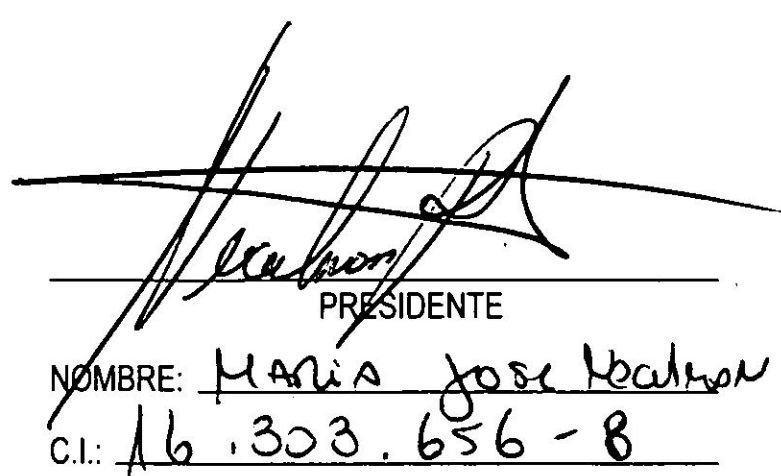 PRESIDENTE
NOMBRE: MARIA JOSE
C.I.: 16.303.656-8